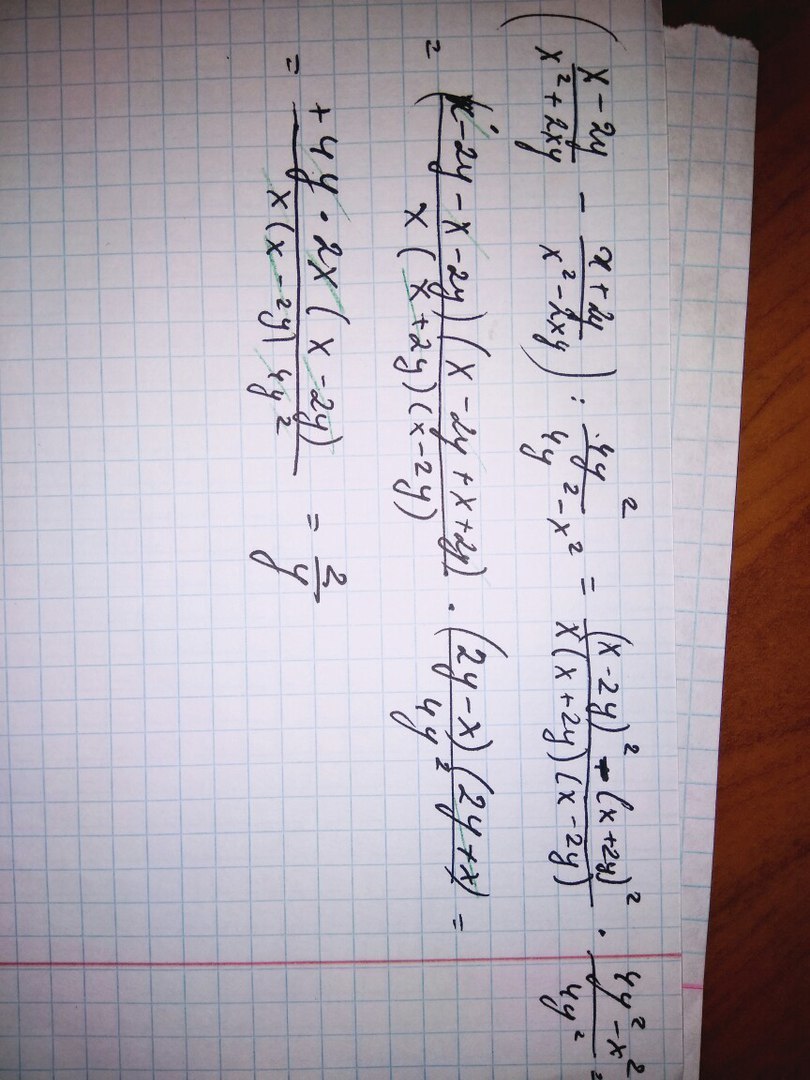 (x - 2y / x² + 2xy - x + 2y / x² - 2xy) : 4y² / 4y² - x² = (x - 2y)² - (x + 2y)² / x(x + 2y)(x - 2y) · 4y² - x² / 4y² =
= (x - 2y - x - 2y)(x - 2y + x + 2y) / x(x + 2y)(x - 2y) · (2y - x)(2y + x) / 4y² =
= + 4y · 2x(x - 2y) / x(x - 2y) 4y² = 2 / y